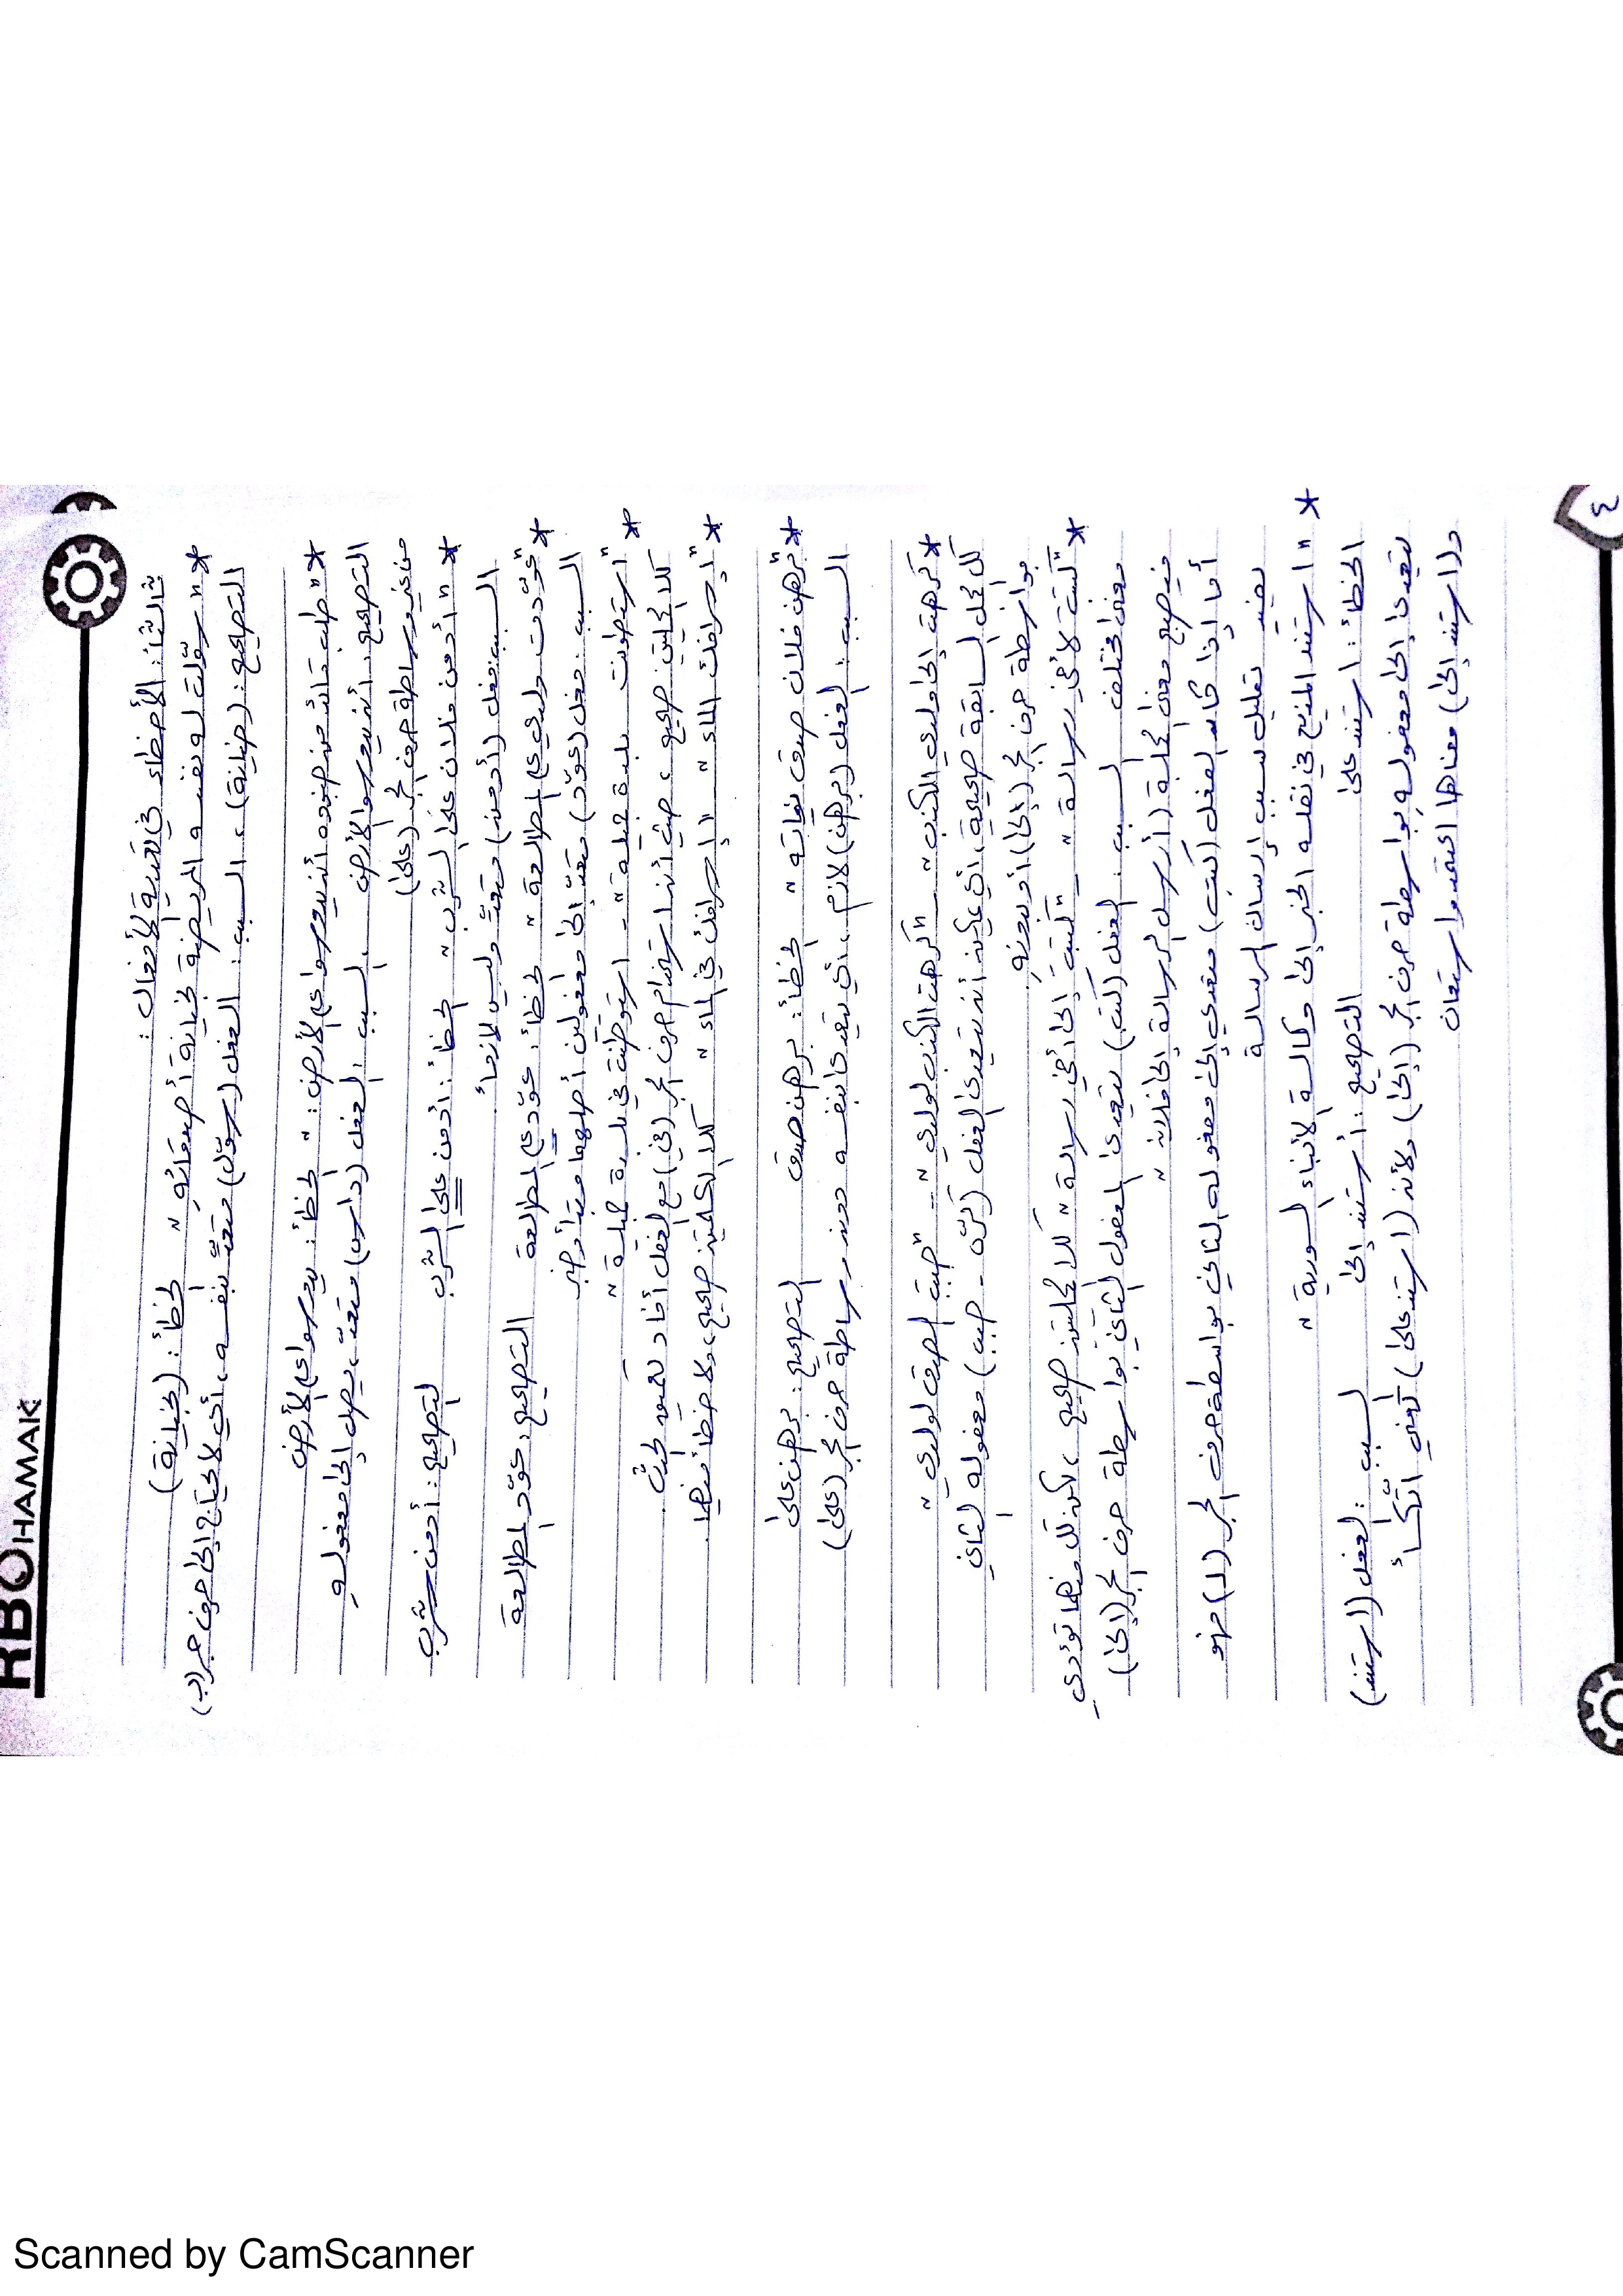 RBOHAMAK
٤
ثالثاً: الأخطاء في تعدية الأفعال:
* "سوّلت له نفسه المريضة لخيانة أصدقائه" الخطأ: (لخيانة)
التصحيح: (خيانة)، السبب: الفعل (سوّل) متعدٍّ بنفسه، أي لا يحتاج إلى حرف جر (ل)
* "طلب قائد من جنوده أن يدوسوا على الأرض." الخطأ: يدوسوا على الأرض
التصحيح: أن يدوسوا الأرض. السبب: الفعل (داس) متعدٍّ، يصل إلى مفعوله
من غير وساطة حرف الجر (على)
* "أدمن فلان على الشرب" الخطأ: أدمن على الشرب التصحيح: أدمن شرب
السبب: فعل (أدمن) متعدٍّ وليس لازماً.
* "عوّدت ولدي على المطالعة" الخطأ: عوّد على المطالعة التصحيح: عوّد المطالعة
السبب: فعل (عوّد) متعدٍّ إلى مفعولين أصلهما مبتدأ وخبر
* "استوطنت بلدة جميلة" - استوطنت في بلدة جميلة"
كلا الجملتين صحيح، حيث أن استخدام حرف الجر (في) مع الفعل أفاد تحديد المكان.
* "إحرافك الماء" "إحرافك في الماء" كلا الجملتين صحيح، ولا خطأ فيهما.
* "برهن فلان صدق نواياه" الخطأ: برهن صدق التصحيح: برهن على
السبب: الفعل (برهن) لازم، أي يتعدى بنفسه دون وساطة حرف الجر (على)
* "كرهت إلى ولدي الكذب" - "كرهت الكذب لولدي" - "حببت الصدق لولدي"
كل الجمل السابقة صحيحة، أي يمكن أن نتعدى الفعل (كرّه - حبب) مفعوله الثاني
بواسطة حرف الجر (إلى) أو بدونه
* "كتبت لأخي رسالة" - "كتبت إلى أخي رسالة" كلا الجملتين صحيح، لكن كل منهما تؤدي
معنى مختلف السبب: الفعل (كتب) يتعدى المفعول الثاني بواسطة حرف الجر (إلى)
فيصبح معنى الجملة (أرسل الرسالة إلى فلان"
أما إذا كان الفعل (كتب) متعدي إلى مفعوله الثاني بواسطة حرف الجر (لـ) فهو
يفيد تعليل سبب إرسال الرسالة
* "استند المذيع في نقله الخبر إلى وكالة الأنباء السورية"
الخطأ: استند على التصحيح: استند إلى السبب: الفعل (استند)
تعدى إلى مفعوله بواسطة حرف الجر (إلى) ولأن (استند على) تعني اتّكأ
و(استند إلى) معناها اعتمد واستعان
Scanned by CamScanner